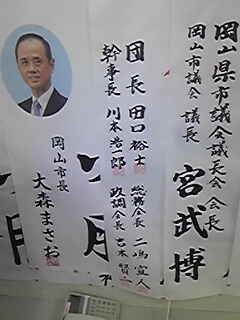 岡山県市議会議長会 会長
岡山市議会 議長
宮武 博
団長 田口裕士
幹事長 川本浩一郎
総務会長 二嶋宣人
政調会長 吉本賢二
岡山市長
大森まさお